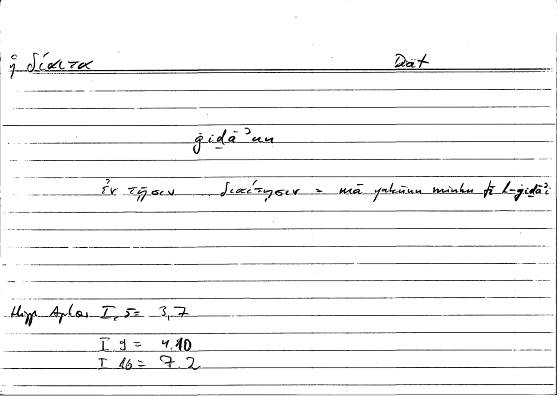 ἡ δίαιτα Diät
ġiḏāʾun
ἐν τῇσιν .. διαίτῃσιν = mā yakūnu minhu fī l-ġiḏāʾi
Hipp. Aphor. I, 5 = 3,7
I 9 = 4.10
I 16 = 7.2